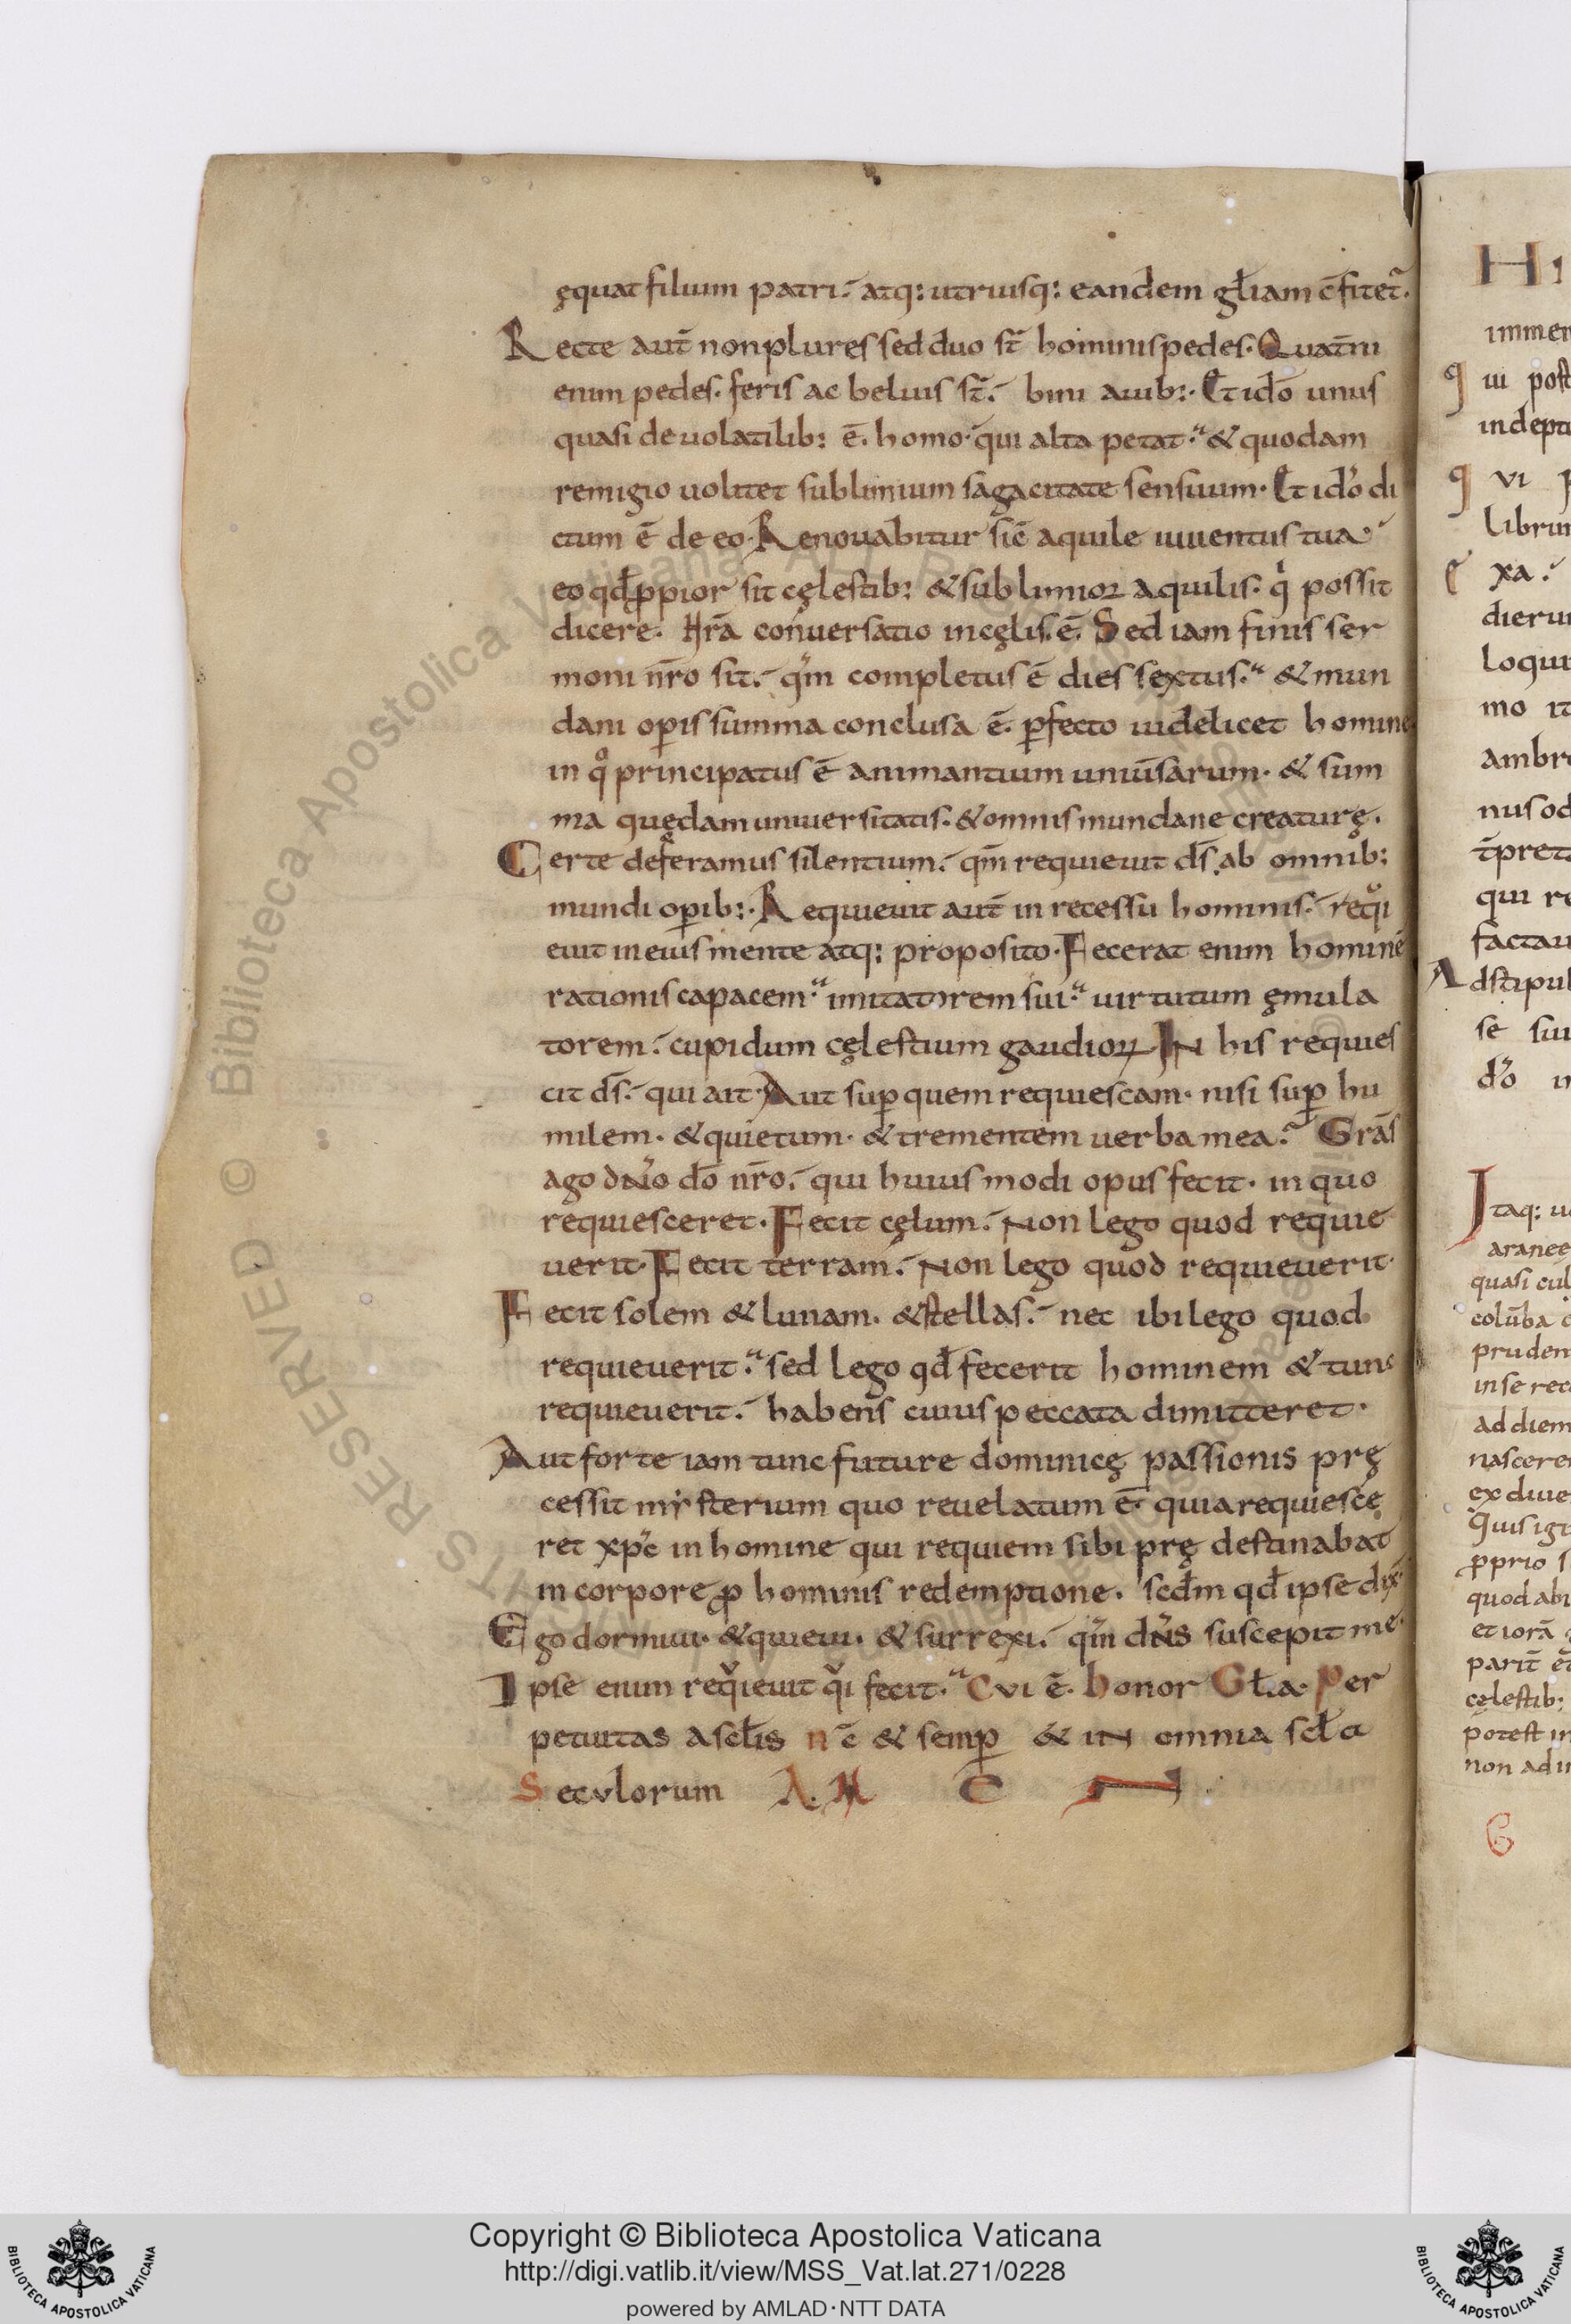 ęquat filium patri. atq: utriusq: eandem gl̄iam c̄fitet᷑.
Recte aut̄ non plures sed duo st̄ hominis pedes. Quat̄ni
enim pedes. feris ac beluis st̄. bini auib:. Et id̄o unus
quasi de uolatilib: ē. homo. qui alta petat. & quodam
remigio uolitet sublimium sagacitate sensuum. Et id̄o di
ctum ē de eo. Renouabitur sic̄ aquile iuuentus tua
eo qd̄ ꝓpior sit cęlestib: & sublimior aquilis. qͥ possit
dicere. Nr̄a conuersatio in cęlis. ē. Sed iam finis ser
moni nr̄o sit. qm̄ completus ē dies sextus. & mun
dani oꝑis summa conclusa ē. ꝑfecto uidelicet homine
in qͦ principatus ē animantium uniūsarum. & sum
ma quędam uniuersitatis. & omnis mundane creaturę.
Certe deferamus silentium. qm̄ requieuit ds̄ ab omnib:
mundi oꝑib:. Requieuit aut̄ in recessu hominis. reqͥ
euit in eius mente atq: proposito. Fecerat enim hominē
rationis capacem. imitatorem sui. uirtutum ęmula
torem. cupidum cęlestium gaudioꝝ. IN his requies
cit ds̄. qui ait. Aut suꝑ quem requiescam. nisi suꝑ hu
milem. & quietum. & trementem uerba mea. Grās
ago dn̄o do̅ nr̄o. qui huius modi opus fecit. in quo
requiesceret. Fecit cęlum. Non lego quod requie
uerit. Fecit terram. Non lego quod requieuerit.
Fecit solem & lunam. & stellas. nec ibi lego quod
requieuerit. sed lego qd̄ fecerit hominem & tunc
requieuerit. habens cuius peccata dimitteret.
Aut forte iam tunc future dominicę passionis prę
cessit mysterium quo reuelatum ē. quia requiescę
ret xp̄c in homine qui requiem sibi prę destinabat
in corpore ꝓ hominis redemptione. scd̄m qd̄ ipse dix̄
Ego dormiui. & quieui. & surrexi. qm̄ dn̄s suscepit me.
Ipse enim reqͥeuit qͥ fecit. Cui ē. honor Gl̄a. Per
petuitas a scl̄is nc̄ & semꝑ & IN omnia scl̄a
Seculorum A. M E N
H
immen
q ui post
indept
q vi
librum
e xa.
dierum
loqui
mo it
ambro
nus od
t̄pret
qui re
factau
Adstipul
se sui
dō
Itaq: u
araneę
quasi cul
colūba
pruden
in se rec
ad diem
nascere
ex diue
Quis igi
ꝓprio s
quod abi
et iorā
parit̄
cęlestib:
potest in
non ad i
© Biblioteca Apostolica Vaticana
Copyright © Biblioteca Apostolica Vaticana
http://digi.vatlib.it/view/MSS_Vat.lat.271/0228
powered by AMLAD·NTT DATA
BIBLIOTECA APOSTOLICA VATICANA
BIBLIOTECA APOSTOLICA VATICANA